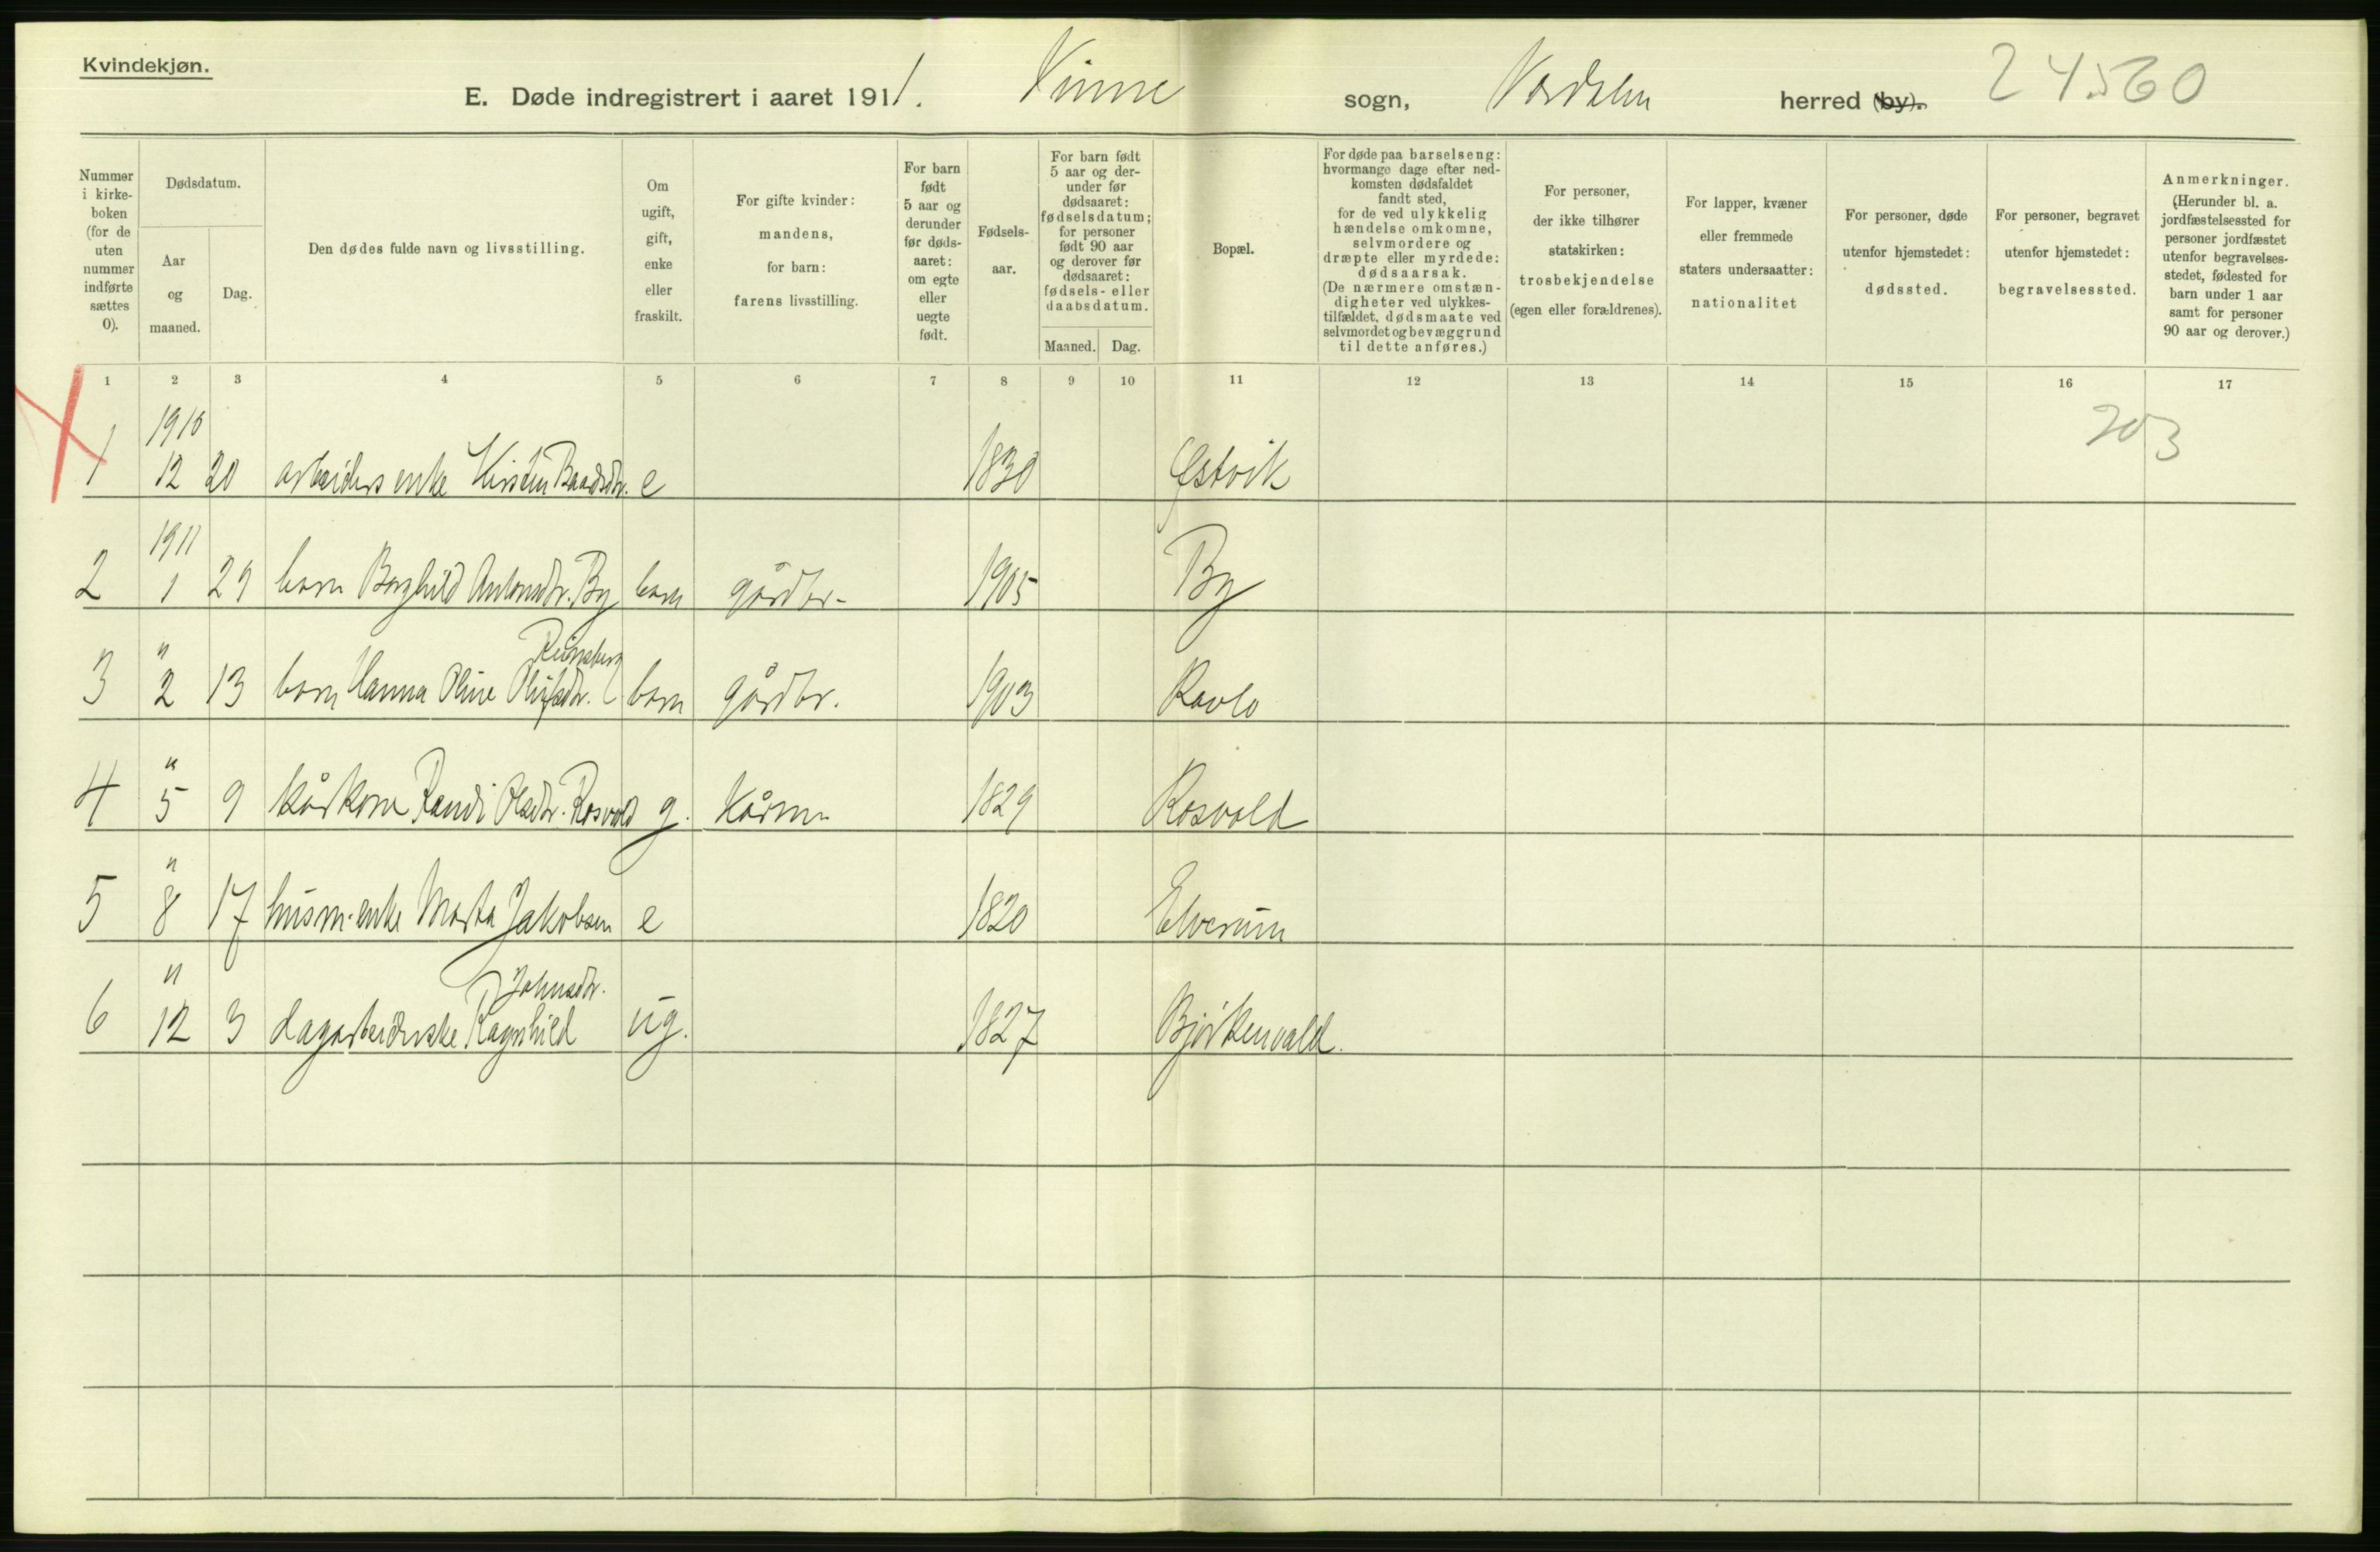 Kvindekjøn.
E. Døde indregistrert i aaret 1911. Vinne sogn, Værdalen herred (by). 24560
Nummer i kirke-boken (for de uten nummer indførte sættes 0).
Dødsdatum.
Aar og maaned.
Dag.
Den dødes fulde navn og livsstilling.
Om ugift, gift, enke eller fraskilt.
For gifte kvinder: mandens, for barn: farens livsstilling.
For barn født 5 aar og derunder før døds-aaret: om egte eller uegte født.
Fødsels-aar.
For barn født 5 aar og der-under før dødsaaret: fødselsdatum; for personer født 90 aar og derover før dødsaaret: fødsels- eller daabsdatum.
Maaned. Dag.
Bopæl.
For døde paa barselseng: hvormange dage efter ned-komsten dødsfaldet fandt sted, for de ved ulykkelig hændelse omkomne, selvmordere og dræpte eller myrdede: dødsaarsak. (De nærmere omstæn-digheter ved ulykkes-tilfældet, dødsmaate ved selvmordet og bevæggrund til dette anføres.)
For personer, der ikke tilhører statskirken: trosbekjendelse (egen eller forældrenes).
For lapper, kvæner eller fremmede staters undersaatter: nationalitet
For personer, døde utenfor hjemstedet: dødssted.
For personer, begravet utenfor hjemstedet: begravelsessted.
Anmerkninger. (Herunder bl. a. jordfæstelsessted for personer jordfæstet utenfor begravelses-stedet, fødested for barn under 1 aar samt for personer 90 aar og derover.)
1 2 3 4 5 6 7 8 9 10 11 12 13 14 15 16 17
203
1910
1 12 20 arbeiders enke Kirsten Baardsdtr. e 1830 Østvik
1911
2 1 29 barn Borghild Antonsdtr. By barn gårdbr. 1905 By
" Reinsberg
3 2 13 barn Hanna Oline Olufsdtr. barn gårdbr. 1903 Ravlo
"
4 5 9 kårkone Randi Olsdtr. Rosvold g. kårm. 1829 Rosvold
"
5 8 17 husm.enke Marta Jakobsen e 1820 Elverum
" Johnsdtr.
6 12 3 dagarbeiderske Ragnhild ug. 1827 Bjørkenvald.